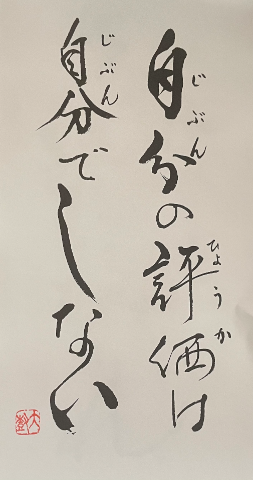 自分の評価は
じぶん
ひょうか
自分でしない
じぶん